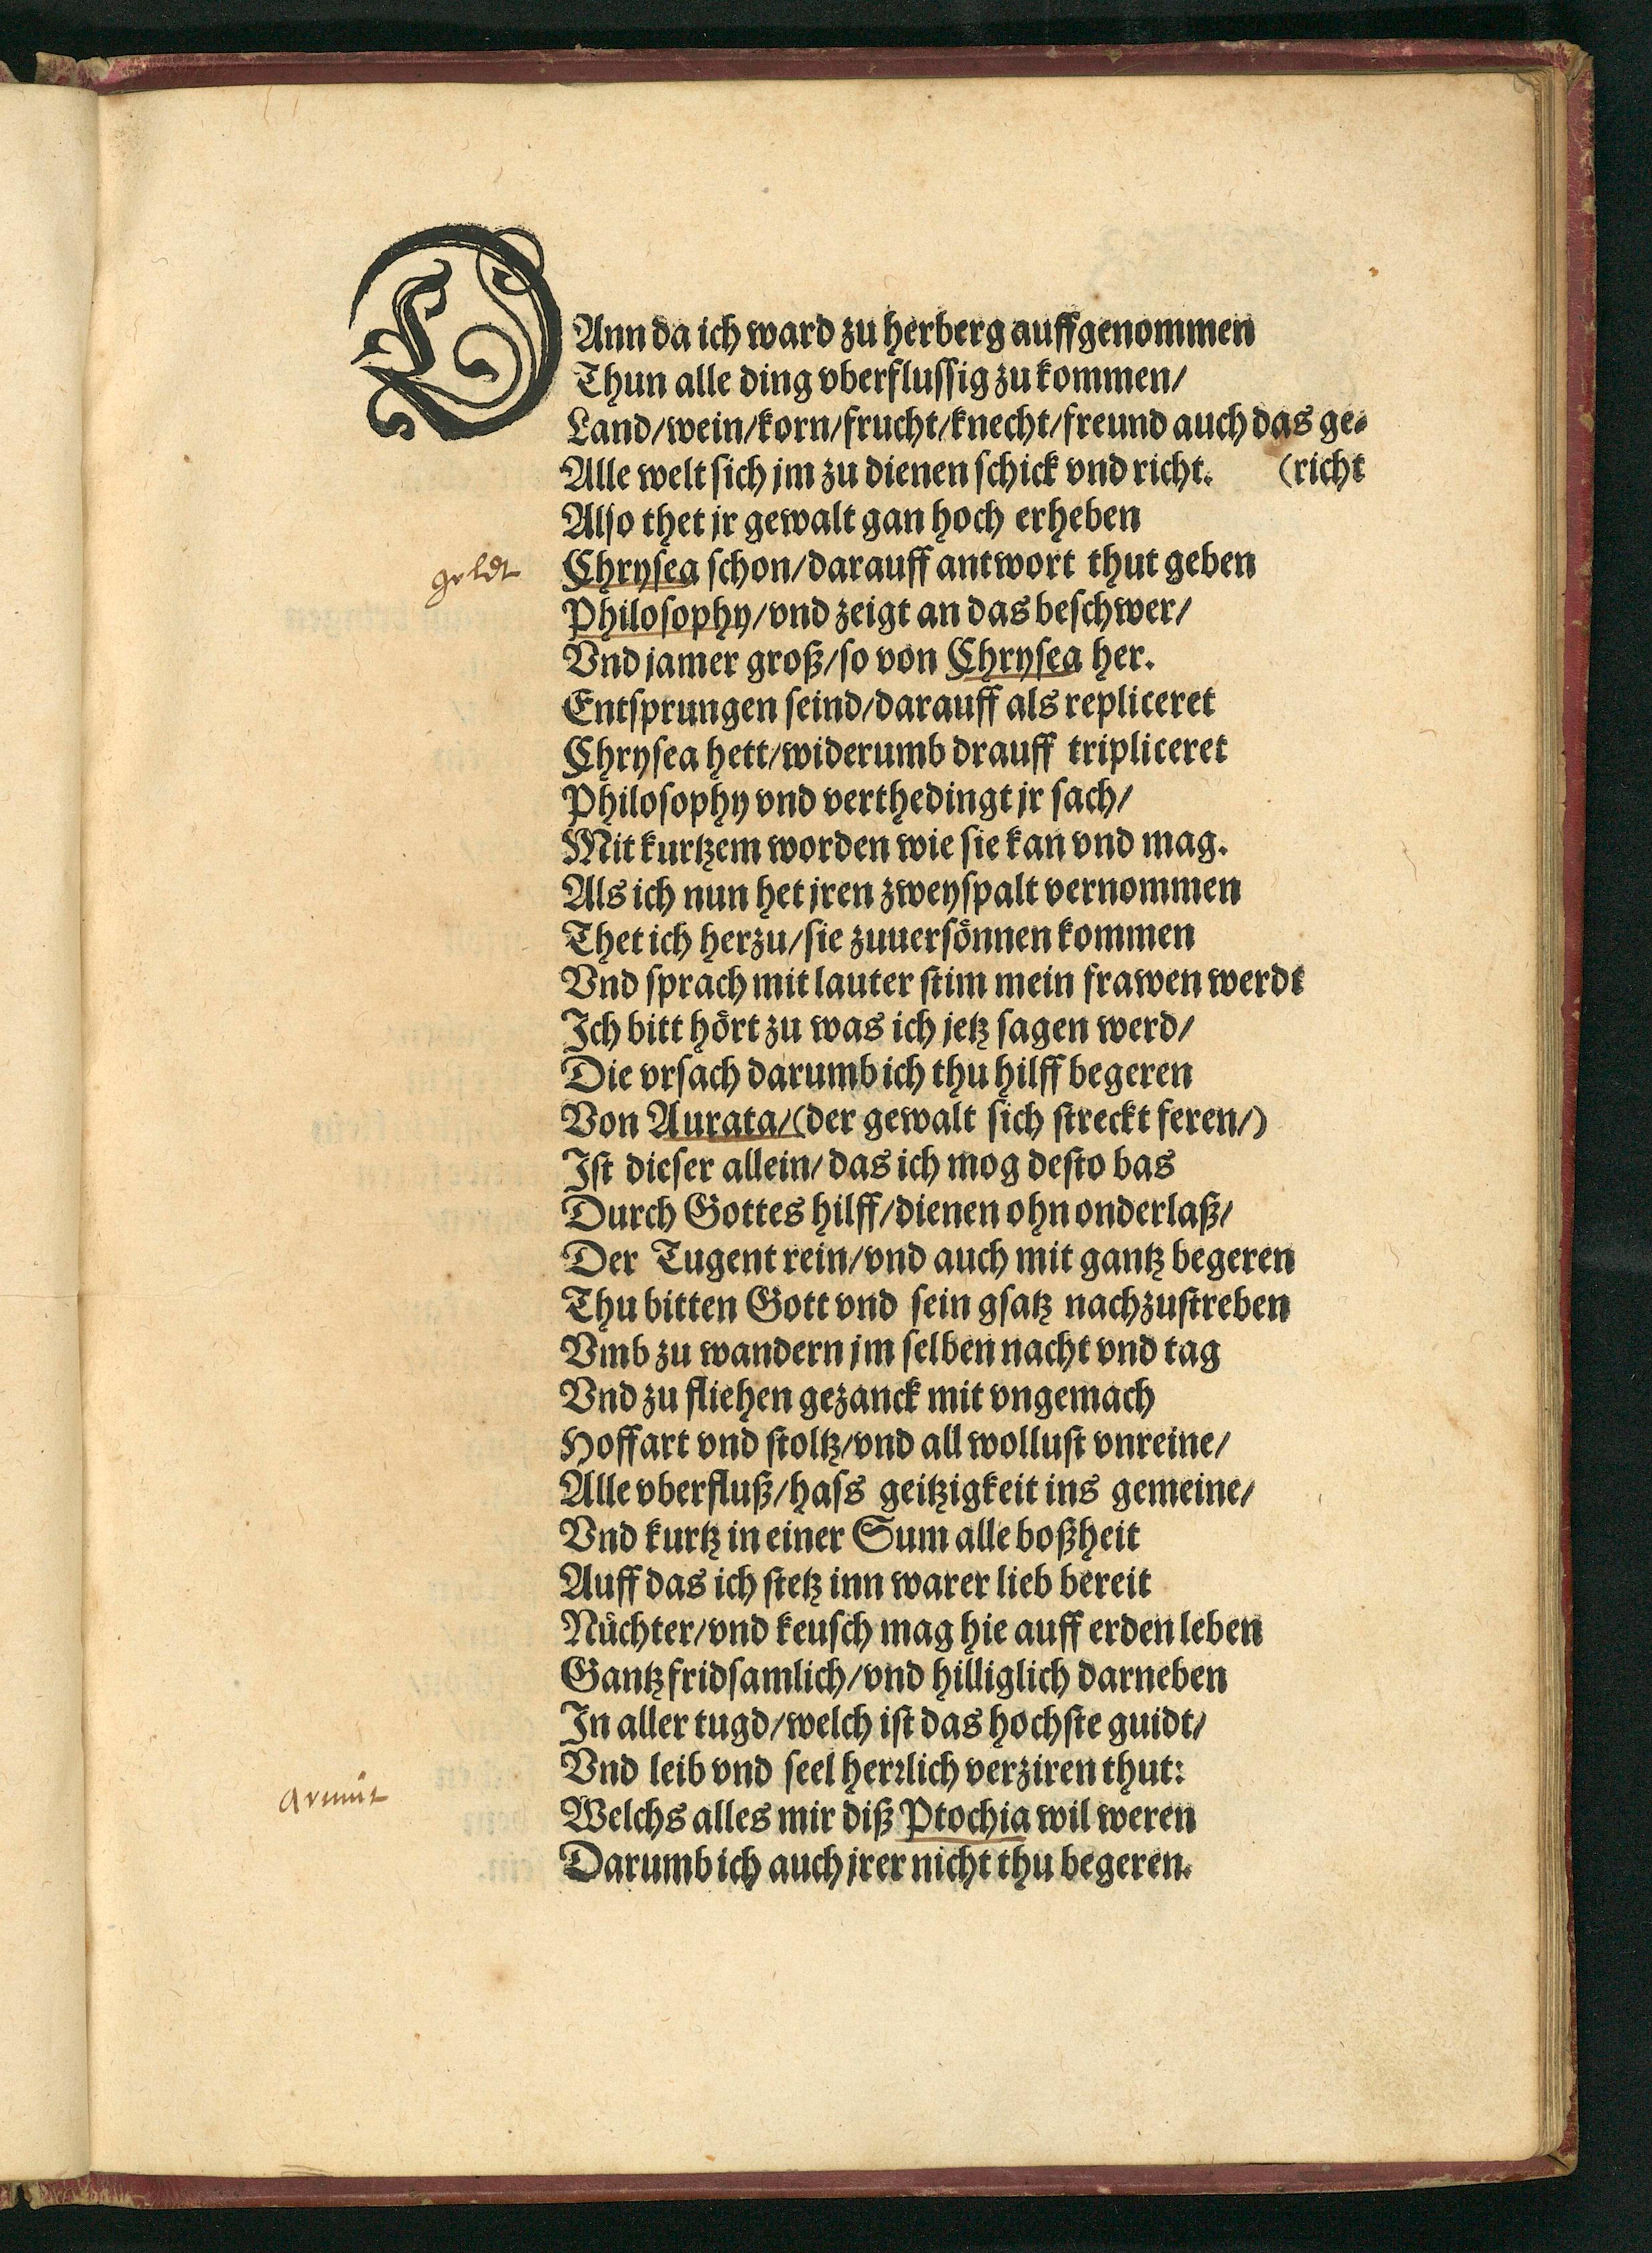 DAnn da ich ward zu herberg auffgenommen
Thun alle ding vberflussig zu kommen/
Land/wein/korn/frucht/knecht/freund auch das ge-
Alle welt sich jm zu dienen schick vnd richt. (richt
Also thet jr gewalt gan hoch erheben
geldt Chrysea schon/darauff antwort thut geben
Philosophy/vnd zeigt an das beschwer/
Vnd jamer groß/so von Chrysea her.
Entsprungen seind/darauff als repliceret
Chrysea hett/widerumb drauff tripliceret
Philosophy vnd verthedingt jr sach/
Mit kurtzem worden wie sie kan vnd mag.
Als ich nun het jren zweyspalt vernommen
Thet ich herzu/sie zuuersönnen kommen
Vnd sprach mit lauter stim mein frawen werdt
Ich bitt hört zu was ich jetz sagen werd/
Die vrsach darumb ich thu hilff begeren
Von Aurata/(der gewalt sich streckt feren/)
Ist dieser allein/das ich mog desto bas
Durch Gottes hilff/dienen ohn onderlaß/
Der Tugent rein/vnd auch mit gantz begeren
Thu bitten Gott vnd sein gsatz nachzustreben
Vmb zu wandern jm selben nacht vnd tag
Vnd zu fliehen gezanck mit vngemach
Hoffart vnd stoltz/vnd all wollust vnreine/
Alle vberfluß/hass geitzigkeit ins gemeine/
Vnd kurtz in einer Sum alle boßheit
Auff das ich stetz inn warer lieb bereit
Nüchter/vnd keusch mag hie auff erden leben
Gantz fridsamlich/vnd hilliglich darneben
In aller tugd/welch ist das hochste guidt/
Vnd leib vnd seel herrlich verziren thut:
armüt Welchs alles mir diß Ptochia wil weren
Darumb ich auch jrer nicht thu begeren.